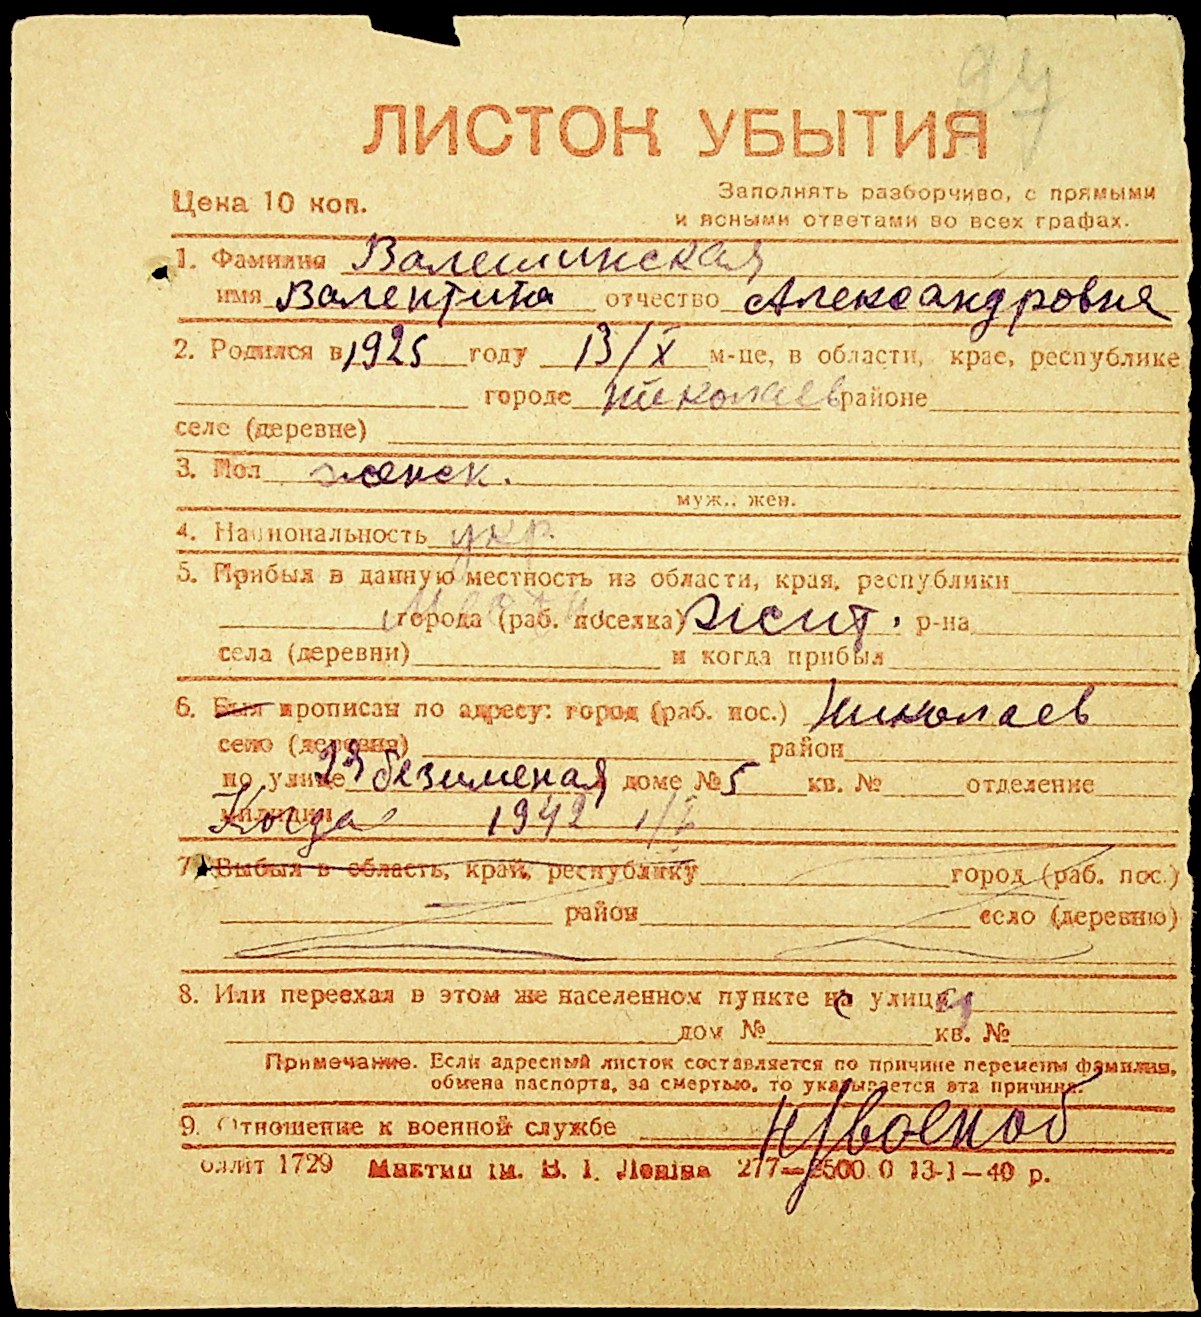 97
ЛИСТОК УБЫТИЯ
Цена 10 коп.
Заполнять разборчиво, с прямыми
и ясными ответами во всех графах.
1. Фамилия Валешинская
имя Валентина отчество Александровна
2. Родился в 1925 году 13/X м-це, в области, крае, республике
городе Николаев районе
селе (деревне)
3. Пол женск.
муж., жен.
4. Национальность укр.
5. Прибыл в данную местность из области, края, республики
города (раб. поселка) жит. р-на
села (деревни) и когда прибыл
6. Был прописан по адресу: город (раб. пос.) Николаев
село (деревня) район
по улице 13 безименая доме № 5 кв. № отделение
милиции Когда 1942 1/I
7. Выбыл в область, край, республику город (раб. пос.)
район село (деревню)
8. Или переехал в этом же населенном пункте на улицу
дом № кв. №
Примечание. Если адресный листок составляется по причине перемены фамилии,
обмена паспорта, за смертью, то указывается эта причина.
9. Отношение к военной службе н/военоб
оллит 1729 Миктип ім. В. І. Леніна 277—2500.0 13-1—40 р.